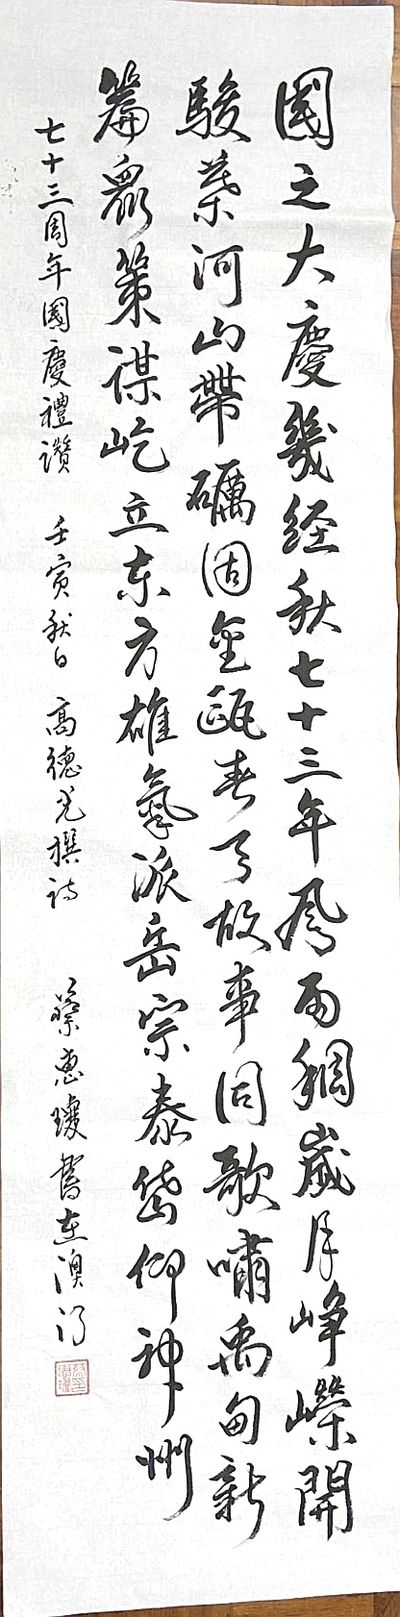 國之大慶幾經秋七十三年風雨稠歲月崢嶸開
駿業河山帶礪固金甌春天故事同歌嘯禹甸新
篇眾策謀屹立東方雄氣派岳宗泰岱仰神州
七十三周年國慶禮讚 壬寅秋日 高德光撰詩 蔡惠瓊書在澳門